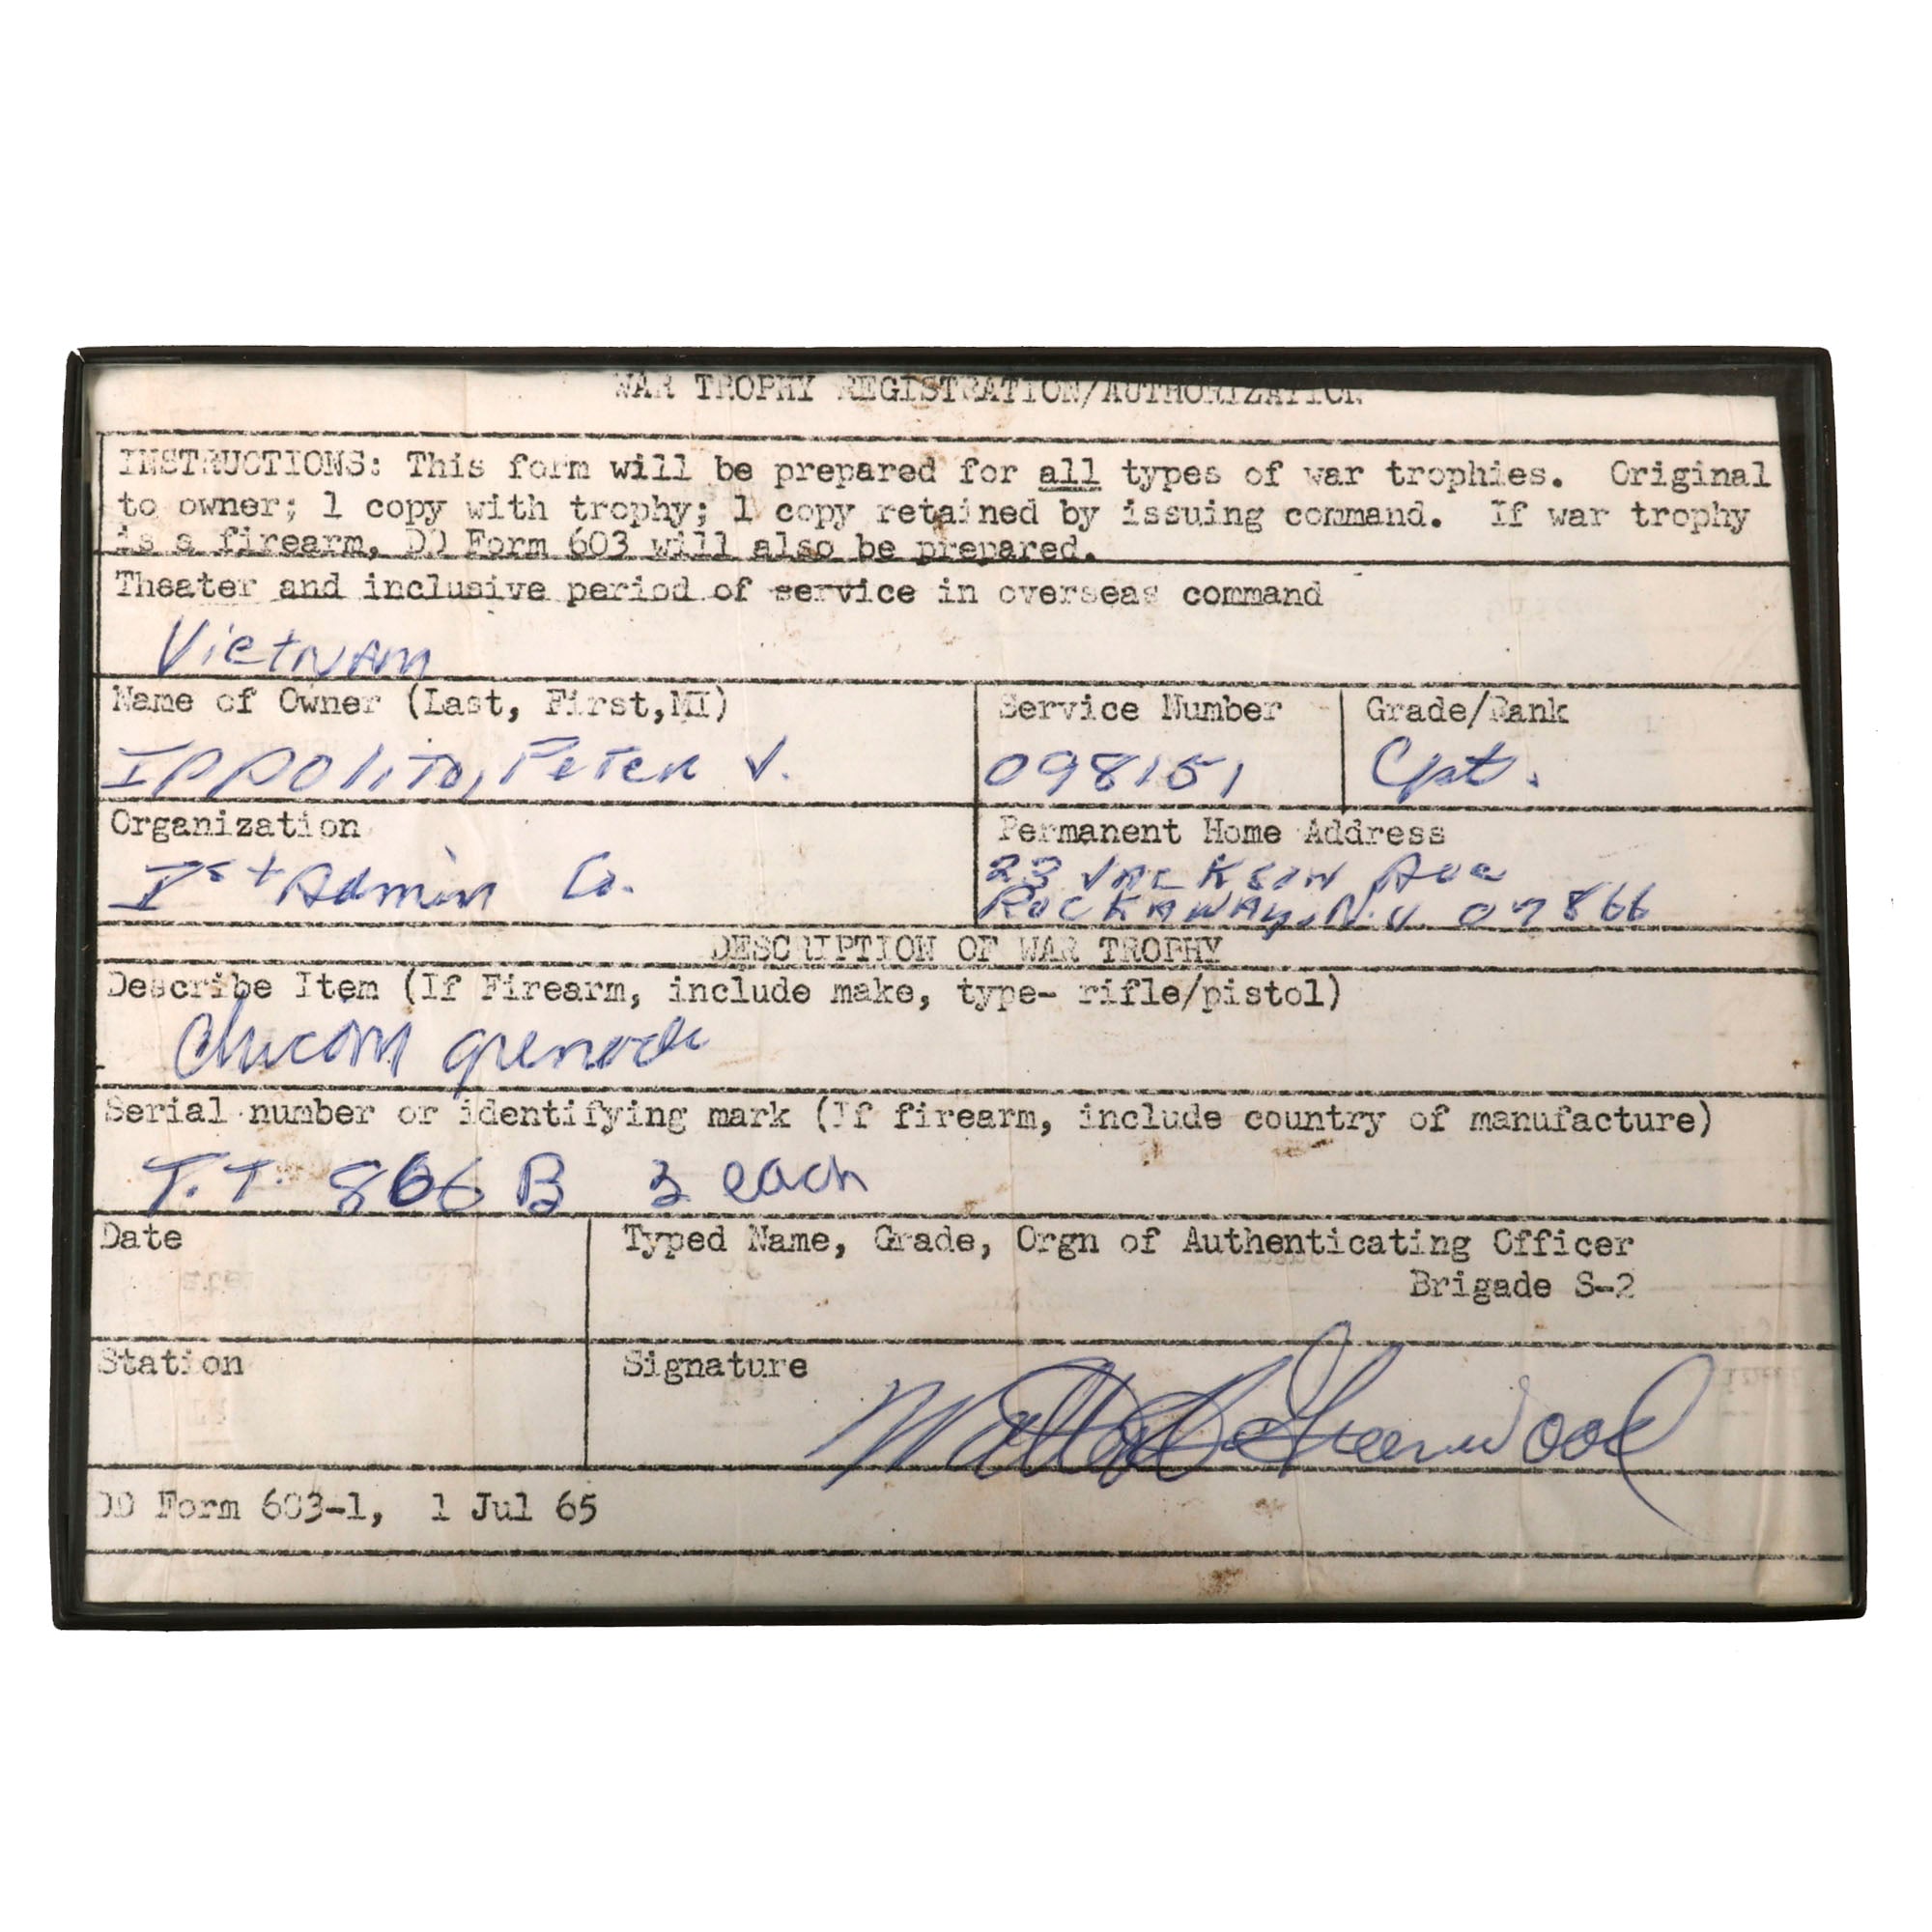 WAR TROPHY REGISTRATION/AUTHORIZATION
INSTRUCTIONS: This form will be prepared for all types of war trophies. Original
to owner; 1 copy with trophy; 1 copy retained by issuing command. If war trophy
is a firearm, DD Form 603 will also be prepared.
Theater and inclusive period of service in overseas command
Vietnam
Name of Owner (Last, First,MI)
Service Number
Grade/Rank
Ippolito, Peter V.
098151
Cpt.
Organization
Permanent Home Address
1st Admin Co.
23 Jackson Ave
Rockaway, N.J. 07866
DESCRIPTION OF WAR TROPHY
Describe Item (If Firearm, include make, type- rifle/pistol)
Chicom grenade
Serial number or identifying mark (If firearm, include country of manufacture)
T.T. 866 B 3 each
Date
Typed Name, Grade, Orgn of Authenticating Officer
Brigade S-2
Station
Signature
Greenwood
DD Form 603-1, 1 Jul 65